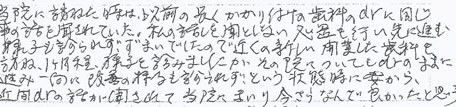 当院に訪ねた時は、以前の長くかかり付けの歯科のdrに同じ
事の話を聞されていた。私の話を聞としない 処置を行い先に進む
様子も診られずずまいでしたので近くの新しい開業した歯科を
訪ね、1ヶ月程 様子を診ましたが その院についてもdrのままに
進み一向に改善の様子も診られず という状態時に妻から、
近間drの話が聞されて 当院にまいり 今さらなんで良かったと思っ